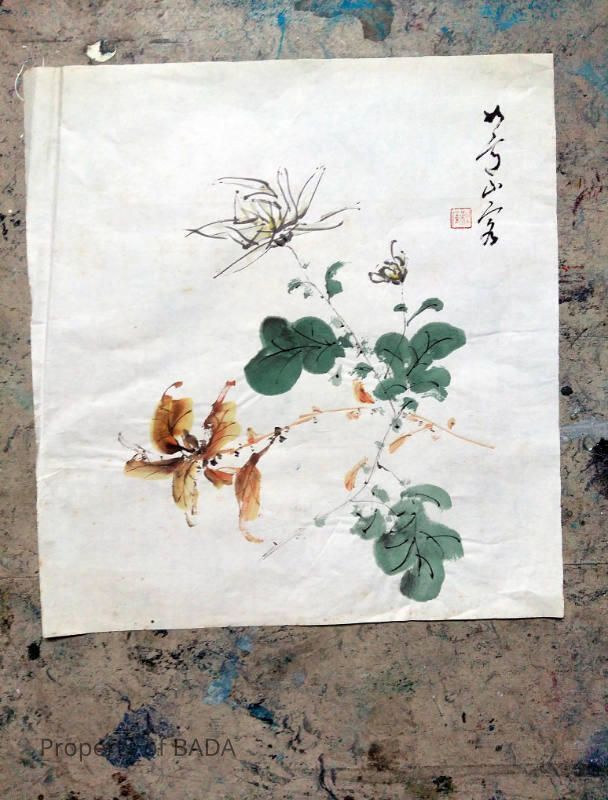 如高山客
Property of BADA